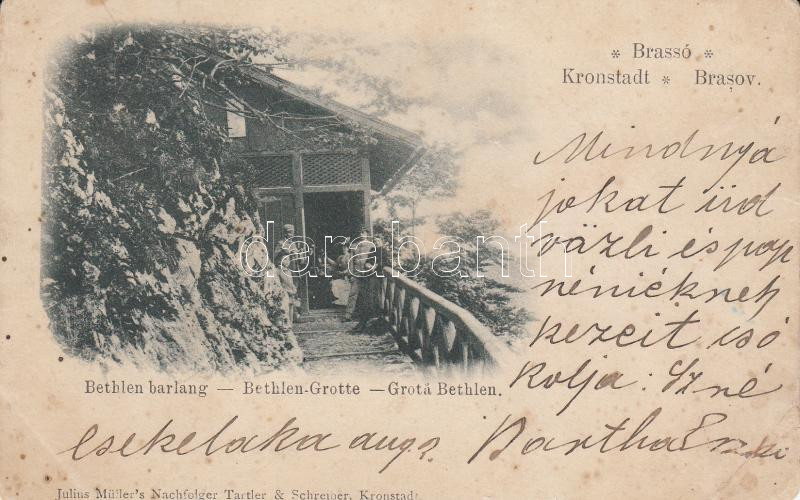 * Brassó *
Kronstadt * Brașov.
Mindnyá
jokat üd
vázli és pap
néniéknek
kezeit csó
kolja: Szné
csekelaka aug.
Bartha
darabanth
Bethlen barlang — Bethlen-Grotte — Grotá Bethlen.
Julius Müller's Nachfolger Tartler & Schreiber, Kronstadt.